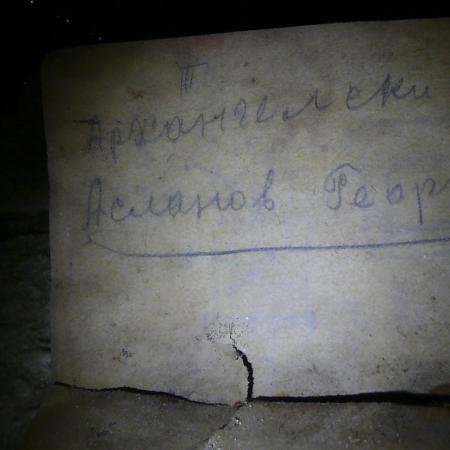 Т
Архангелски
Асланов Геор